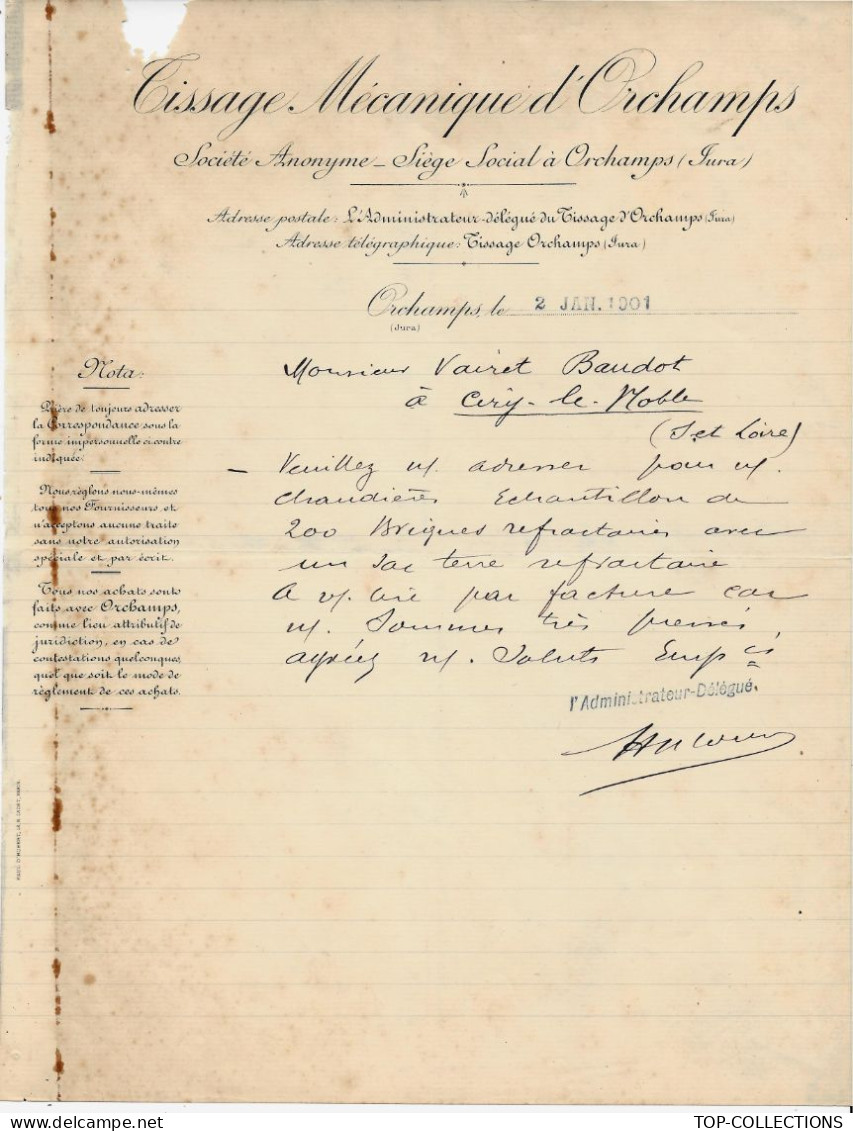 Tissage Mécanique d'Orchamps
Société Anonyme - Siège Social à Orchamps (Jura)
Adresse postale: L'Administrateur-délégué du Tissage d'Orchamps (Jura)
Adresse télégraphique: Tissage Orchamps (Jura)
Orchamps, le 2 JAN. 1901
(Jura)
Monsieur Vairet Baudot
à Ciry-le-Noble
(S et Loire)
Nota:
Prière de toujours adresser
la Correspondance sous la
forme impersonnelle ci-contre
indiquée.
Nous réglons nous-mêmes
tous nos Fournisseurs et
n'acceptons aucune traite
sans notre autorisation
spéciale et par écrit.
Tous nos achats sont
faits avec Orchamps,
comme lieu attributif de
juridiction, en cas de
contestations quelconques,
quel que soit le mode de
règlement de ces achats.
- Veuillez n/. adresser pour n/.
chaudières Echantillon de
200 Briques refractaires avec
un Sac terre refractaire
A par facture car
n/. Sommes très pressés
agréez n/. Saluts Emp és
l'Administrateur-Délégué.
TOP-COLLECTIONS